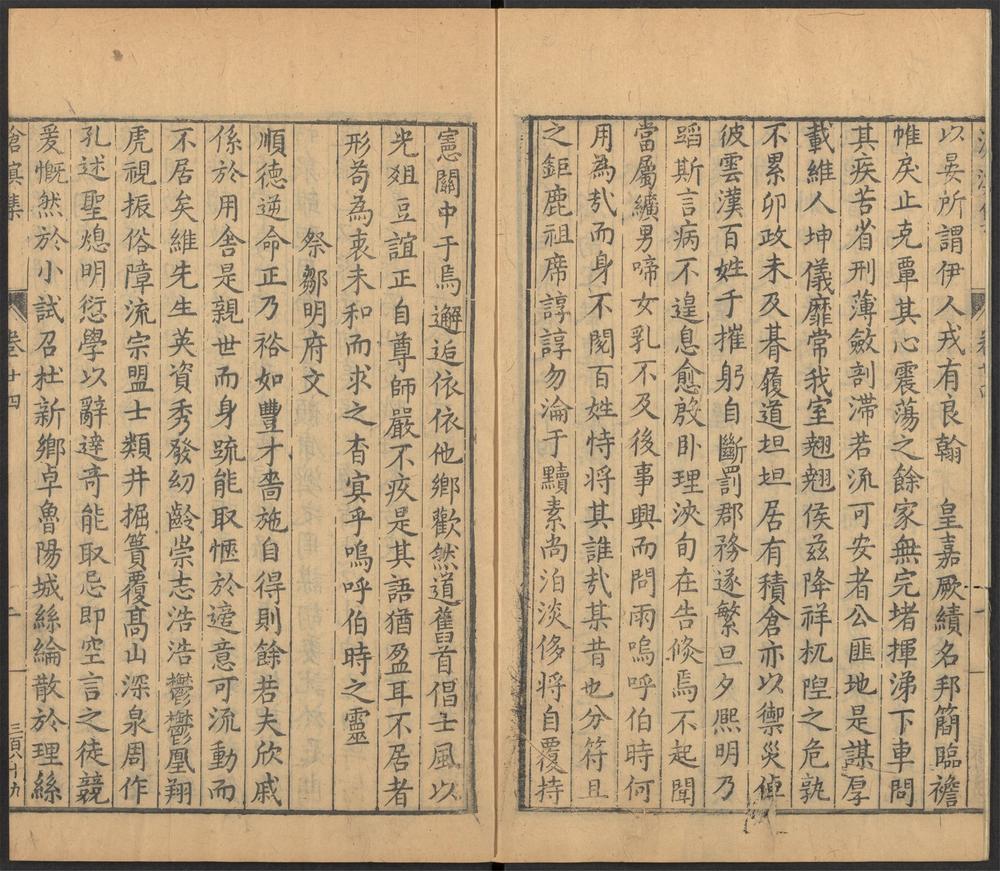 以晏所謂伊人戎有良翰　皇嘉厥績名邦簡臨襜
帷戾止克覃其心震蕩之餘家無完堵揮涕下車問
其疾苦省刑薄斂剖滯若流可安者公匪地是謀厚
載維人坤儀靡常我室翹翹侯茲降祥杌隉之危孰
不累卯政未及朞履道坦坦居有積倉亦以禦災倬
彼雲漢百姓于摧躬自斷罰郡務遂繁旦夕熈明乃
蹈斯言病不遑息愈殷卧理浹旬在告倏焉不起聞
當屬纊男啼女乳不及後事興而問雨嗚呼伯時何
用為㢤而身不閱百姓恃將其誰㢤某昔也分符且
之鉅鹿祖席諄諄勿淪于黷素尚泊淡侈將自覆持
憲關中于焉邂逅依依他鄉歡然道舊首倡士風以
光俎豆誼正自尊師嚴不疚是其語猶盈耳不居者
形苟為衷未和而求之杳㝠乎嗚呼伯時之靈
祭鄒明府文
順德逆命正乃裕如豐才嗇施自得則餘若夫欣戚
係於用舍是親世而身䟽能取愜於適意可流動而
不居矣維先生英資秀發幼齡崇志浩浩鬱鬱凰翔
虎視振俗障流宗盟士類井掘簣覆髙山深泉周作
孔述聖熄明衍學以辭達竒能取忌即空言之徒競
爰慨然於小試召杜新鄉卓魯陽城絲綸散於理絲
滄溟集　卷十四